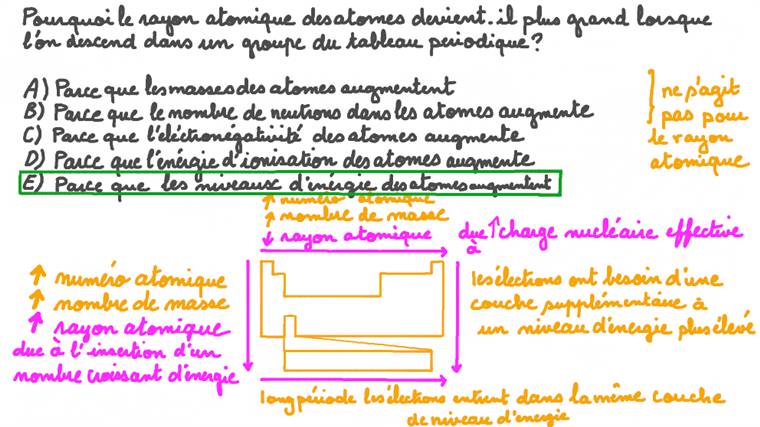 Pourquoi le rayon atomique des atomes devient-il plus grand lorsque
l'on descend dans un groupe du tableau periodique?
A) Parce que les masses des atomes augmentent
B) Parce que le nombre de neutrons dans les atomes augmente
C) Parce que l'eléctronégativité des atomes augmente
D) Parce que l'énérgie d'ionisation des atomes augmente
E) Parce que les niveaux d'inérgie des atomes augmentent
} ne s'agit
pas pour
le rayon
atomique
↑ numéro atomique
↑ nombre de masse
↓ rayon atomique
due ↑ charge nucléaire effective
à
↑ numéro atomique
↑ nombre de masse
↑ rayon atomique
due à l'insertion d'un
nombre croissant d'énergie
les élections ont besoin d'une
couche supplémentaire à
un niveau d'énergie plus élevé
long période les élections entrent dans la même couche
de niveau d'energie